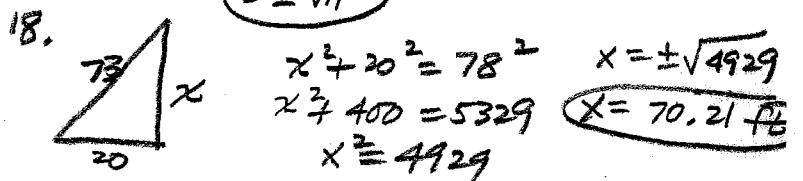 18.
73
x
20
x² + 20² = 78²
x² + 400 = 5329
x² = 4929
x = ±√4929
x = 70.21 ft